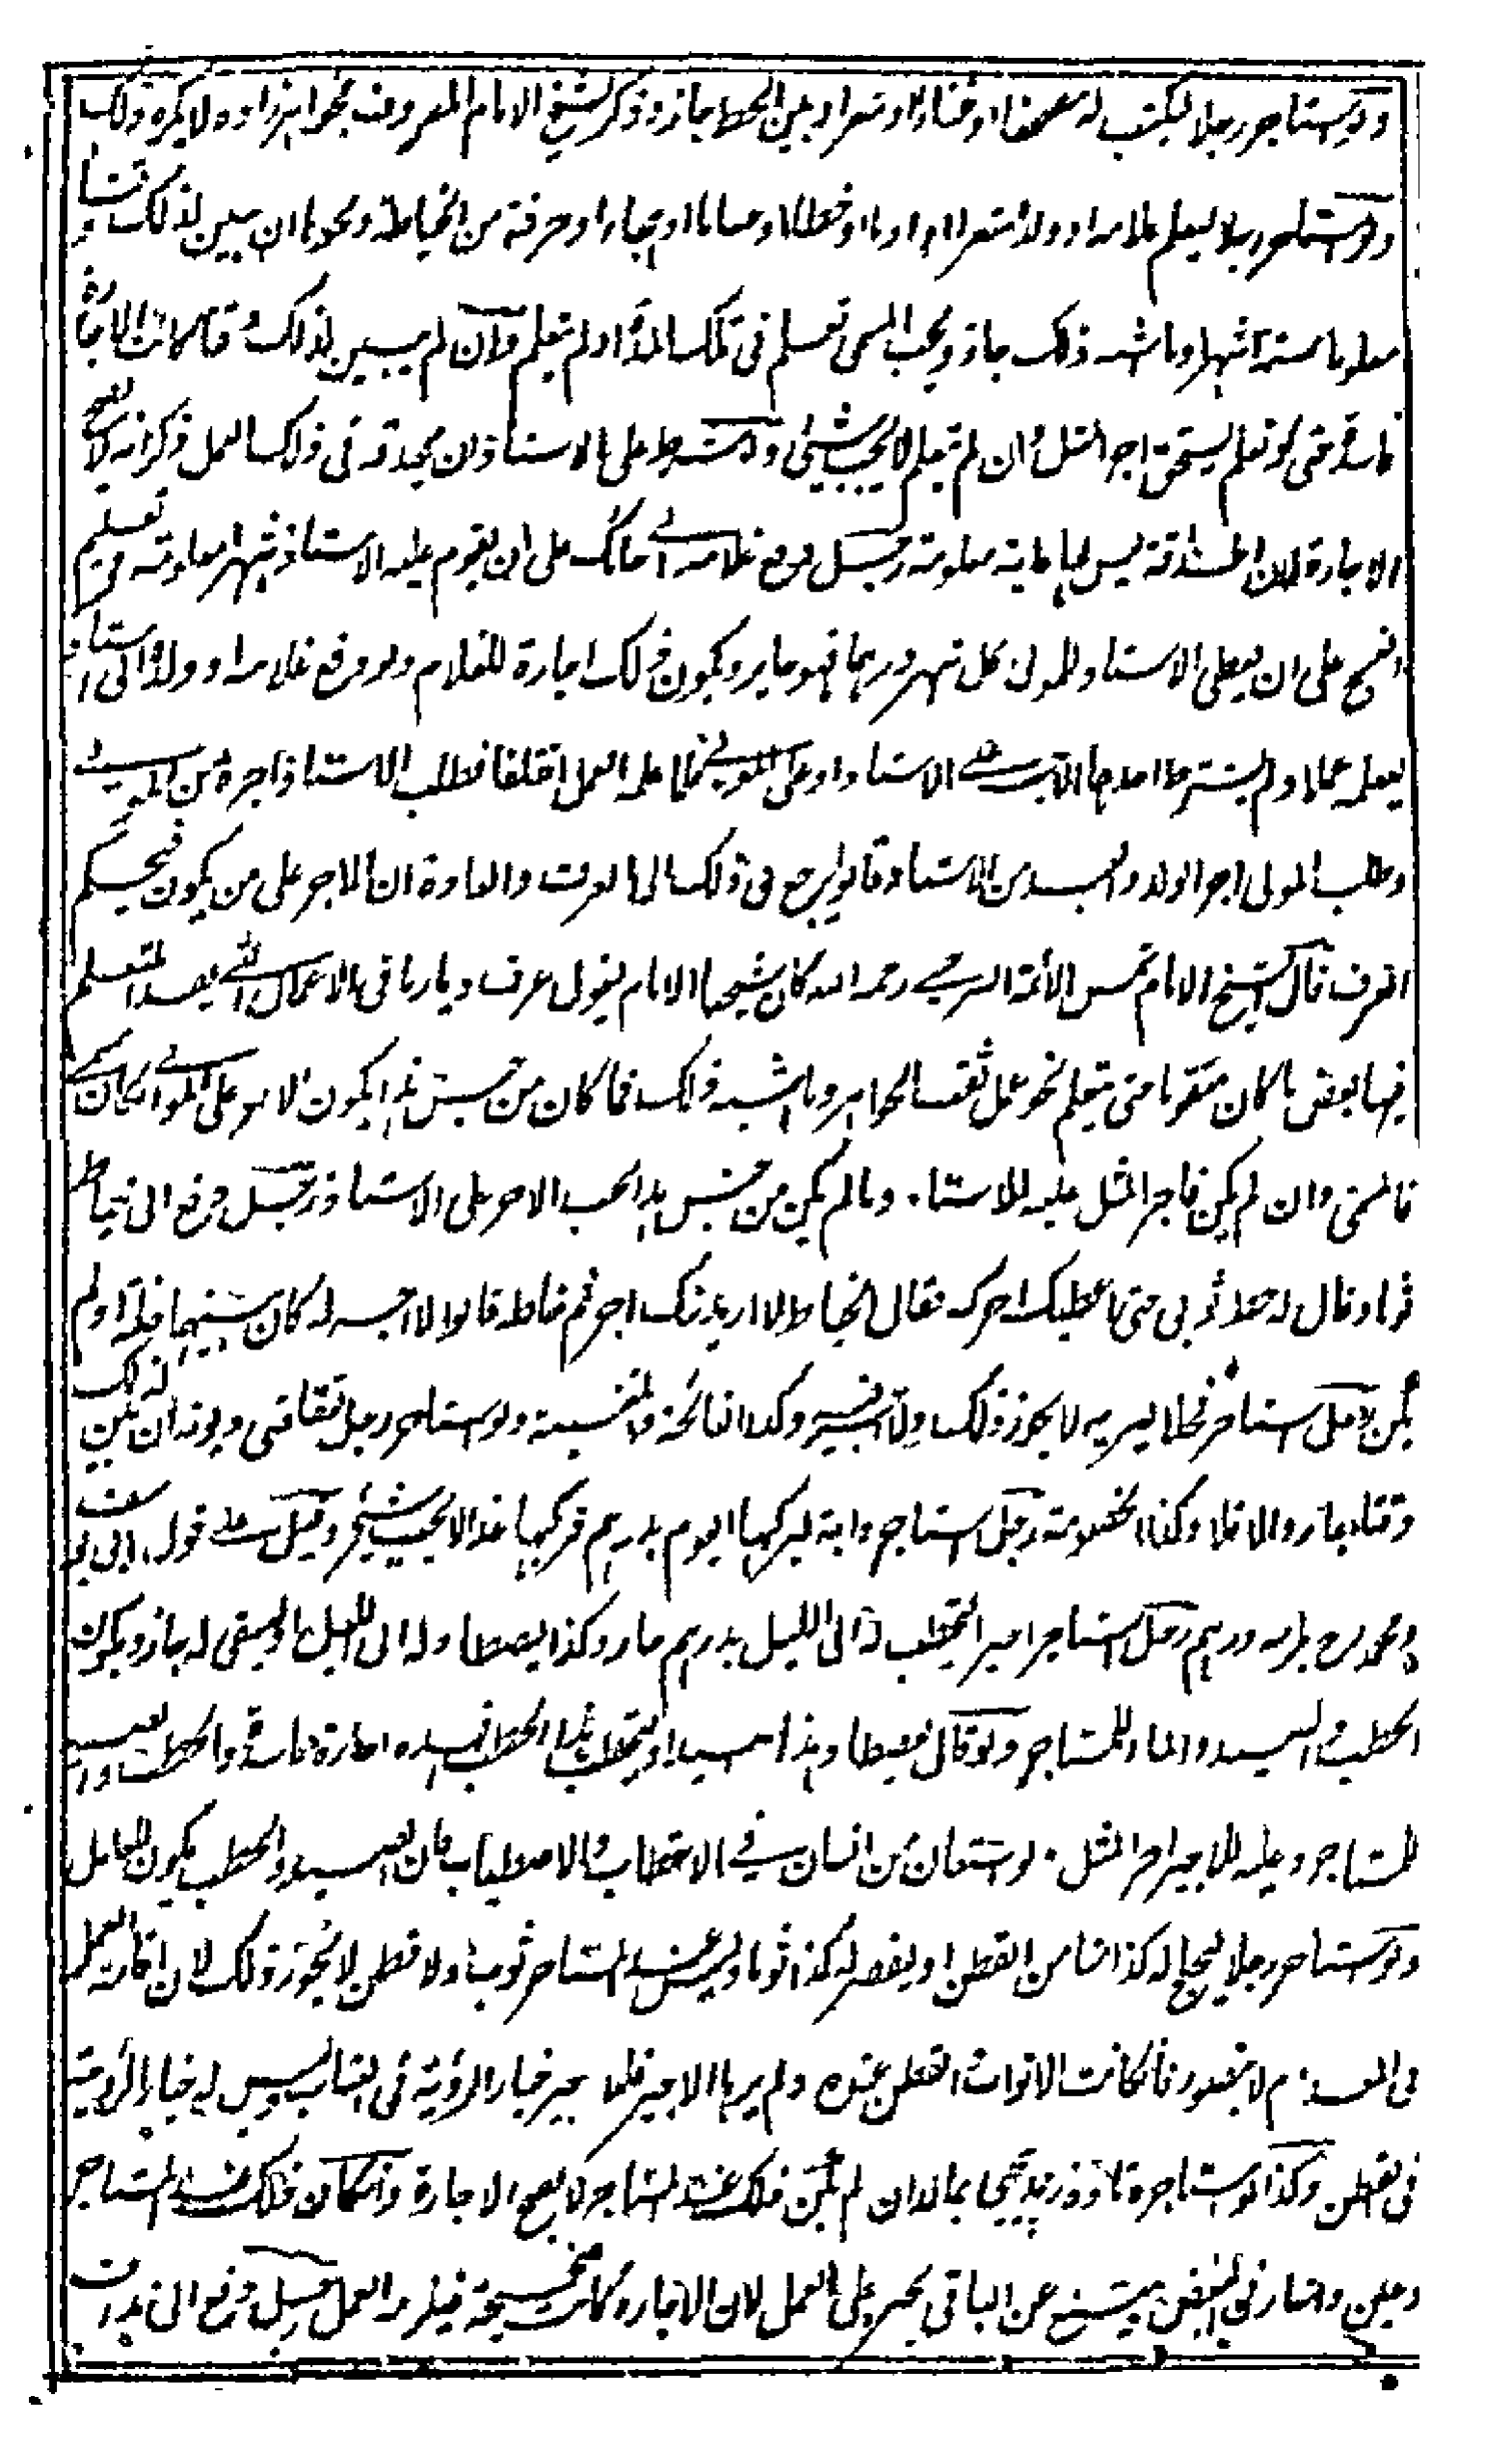 ولو استاجر رجلا ليكتب له مصحفا او غناء او شعرا و بين الخط جاز وذكر الشيخ الامام المعروف بخواهرزاده لا يكره ذلك
ولو استاجر رجلا ليعلم غلامه او ولده شعرا او ادبا او خطا او حسابا او هجاء او حرفة من الخياطة ونحوها ان بين لذلك وقتا
معلوما سنة او شهرا وما اشبه ذلك جاز ويجب المسمى تعلم في تلك المدة او لم يتعلم وان لم يبين لذلك وقتا كانت الاجارة
فاسدة حتى لو تعلم يستحق اجر المثل وان لم يتعلم لا يجب شيئ ولو شرط على الاستاذ ان يحذقه في ذلك العمل ذكر انه لا تصح
الاجارة لان الحذاقة ليس لها غاية معلومة رجل دفع غلامه الى حائك على ان يقوم عليه الاستاذ شهرا معلومة في تعليم
النسج على ان يعطي الاستاذ المولى كل شهر درهما فهو جايز ويكون ذلك اجارة للغلام ولو دفع غلامه او ولده الى استاذ
ليعلمه عملا ولم يشترط احدهما الاجر على الاستاذ او على المولى فلما علمه العمل اختلفا فطلب الاستاذ اجره من المولى
وطلب المولى اجر الولد والعبد من الاستاذ قالوا يرجع في ذلك الى العرف والعادة ان الاجر على من يكون فيحكم
العرف قال الشيخ الامام شمس الائمة السرخسي رحمه الله كان شيخنا الامام يقول عرف ديارنا في الاعمال التي يفسد المتعلم
فيها بعض ما كان متقوما حتى يتعلم نحو عمل ثقب الجواهر وما اشبه ذلك فما كان من جنس هذا يكون الاجر على المولى ان كان سمى
فالمسمى وان لم يكن فاجر المثل عليه للاستاذ وما لم يكن من جنس هذا يجب الاجر على الاستاذ رجل دفع الى خياط
ثوبا وقال له خط ثوبي حتى اعطيك اجرك فقال الخياط لا اريد منك اجر ثم خاطه قالوا لا اجر له كان بينهما خلطة او لم
يكن رجل استاجر فحلا لينزيه لا يجوز ذلك ولا اجر فيه وكذا النائحة والمغنية ولو استاجر رجل يتقاضى ديونه ان بين لذلك
وقتا جاز والا فلا وكذا الخصومة رجل استاجر دابة ليركبها اليوم بدرهم فركبها غدا لا يجب شيئ وقيل على قول ابي يوسف
ومحمد رح يلزمه درهم رجل استاجر اجيرا ليحتطب له الى الليل بدرهم جاز وكذا ليصطاد له الى الليل او ليسقي له جاز ويكون
الحطب والصيد والماء للمستاجر ولو قال ليصطاد هذا الصيد او ليحتطب هذا الحطب فهذه اجارة فاسدة والحطب والصيد
للمستاجر وعليه للاجير اجر المثل ولو استعان من انسان في الاحتطاب والاصطياد فان الصيد والحطب يكون للعامل
ولو استاجر رجلا ليحلج له كذا منا من القطن او ليقصر له كذا ثوبا وليس عند المستاجر ثوب ولا قطن لا يجوز ذلك لان اقامة العمل
في المعدوم لا يتصور فان كانت الاثواب والقطن عنده ولم يرها الاجير فللاجير خيار الرؤية في الثياب وليس له خيار الرؤية
في القطن وكذا لو استاجره بمال ان لم يكن ذلك عند المستاجر لا يصح الاجارة وان كان ذلك عند المستاجر
يمتنع عن الباقي يجبر على العمل لان الاجارة كانت صحيحة فيلزمه العمل رجل دفع الى نداف